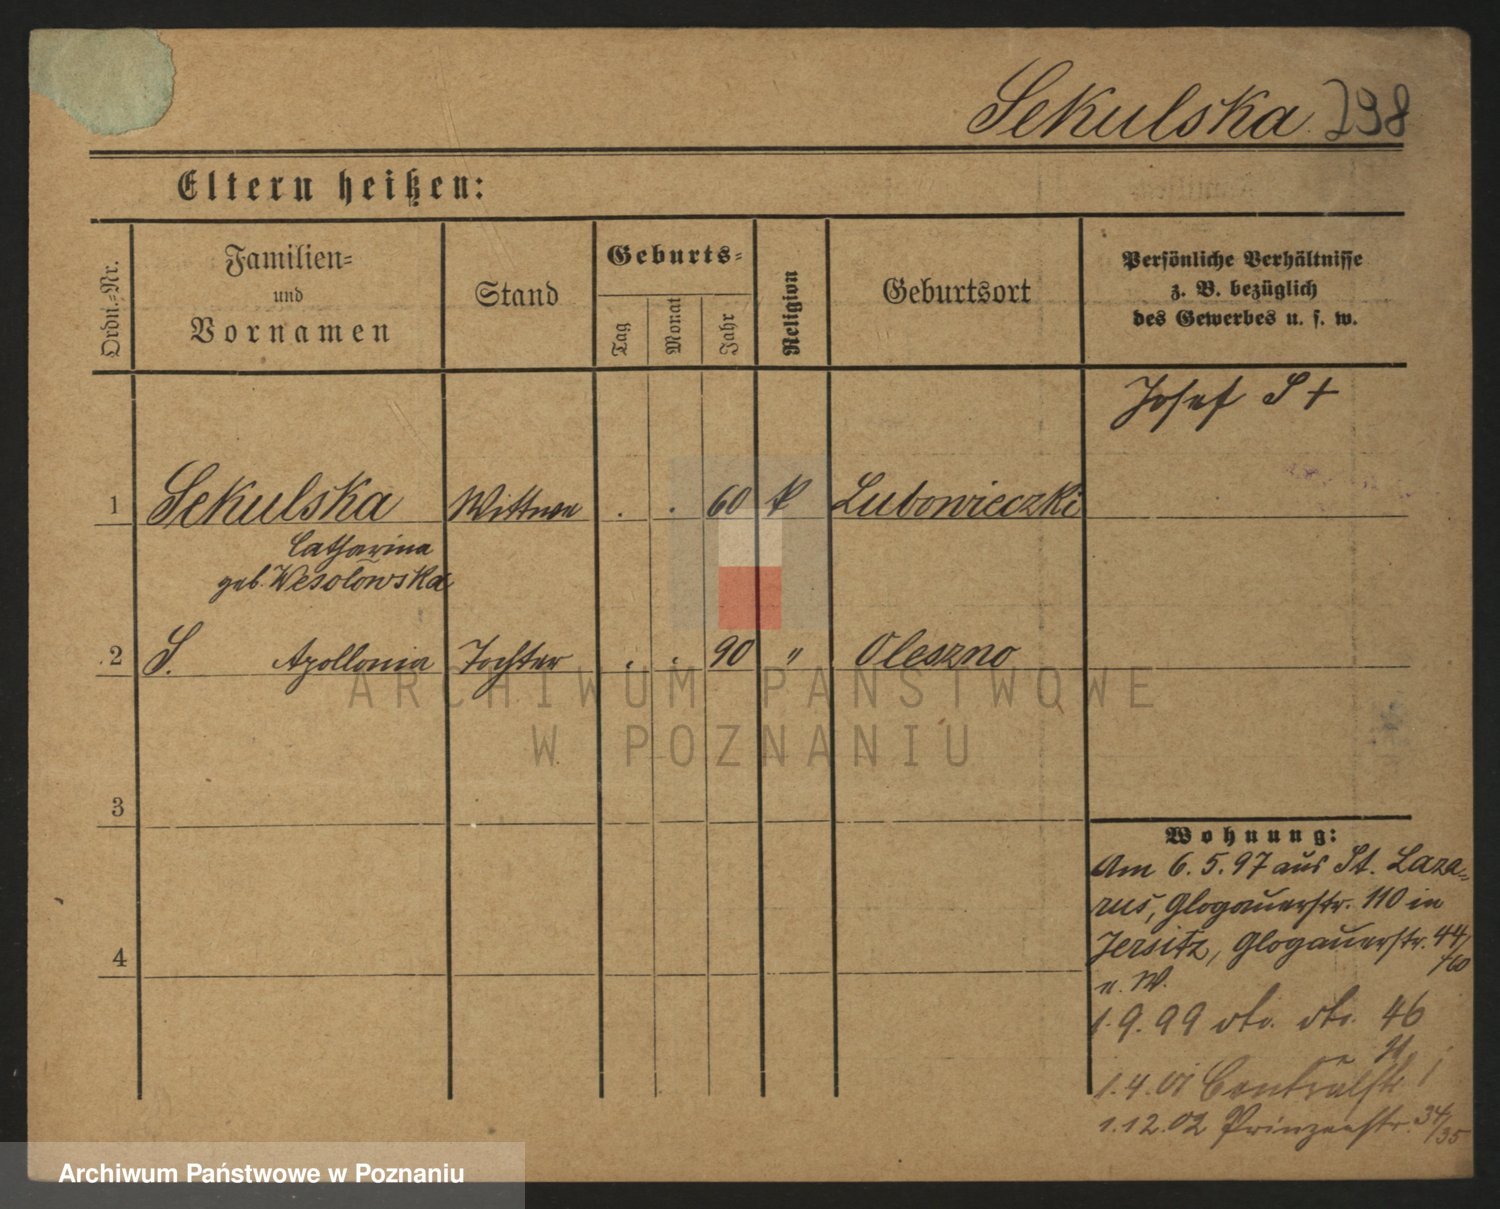 Sekulska. 298
Eltern heißen:
Ordn.=Nr.
Familien=
und
Vornamen
Stand
Geburts=
Tag
Monat
Jahr
Religion
Geburtsort
Persönliche Verhältnisse
z. B. bezüglich
des Gewerbes u. s. w.
Josef S +
1 Sekulska Wittwe . . 60 k Lubowieczki
Catharina
geb. Wesolowska
2 S. Apollonia Tochter . . 90 " Oleszno
ARCHIWUM PAŃSTWOWE
W POZNANIU
3
4
Wohnung:
Am 6.5.97 aus St. Laza=
rus, Glogauerstr. 110 in
Jersitz, Glogauerstr. 44/
u. W.
1.9.99 dto. dto. 46
1.4.01 Centralstr. 1
1.12.02 Prinzenstr. 34/35
Archiwum Państwowe w Poznaniu